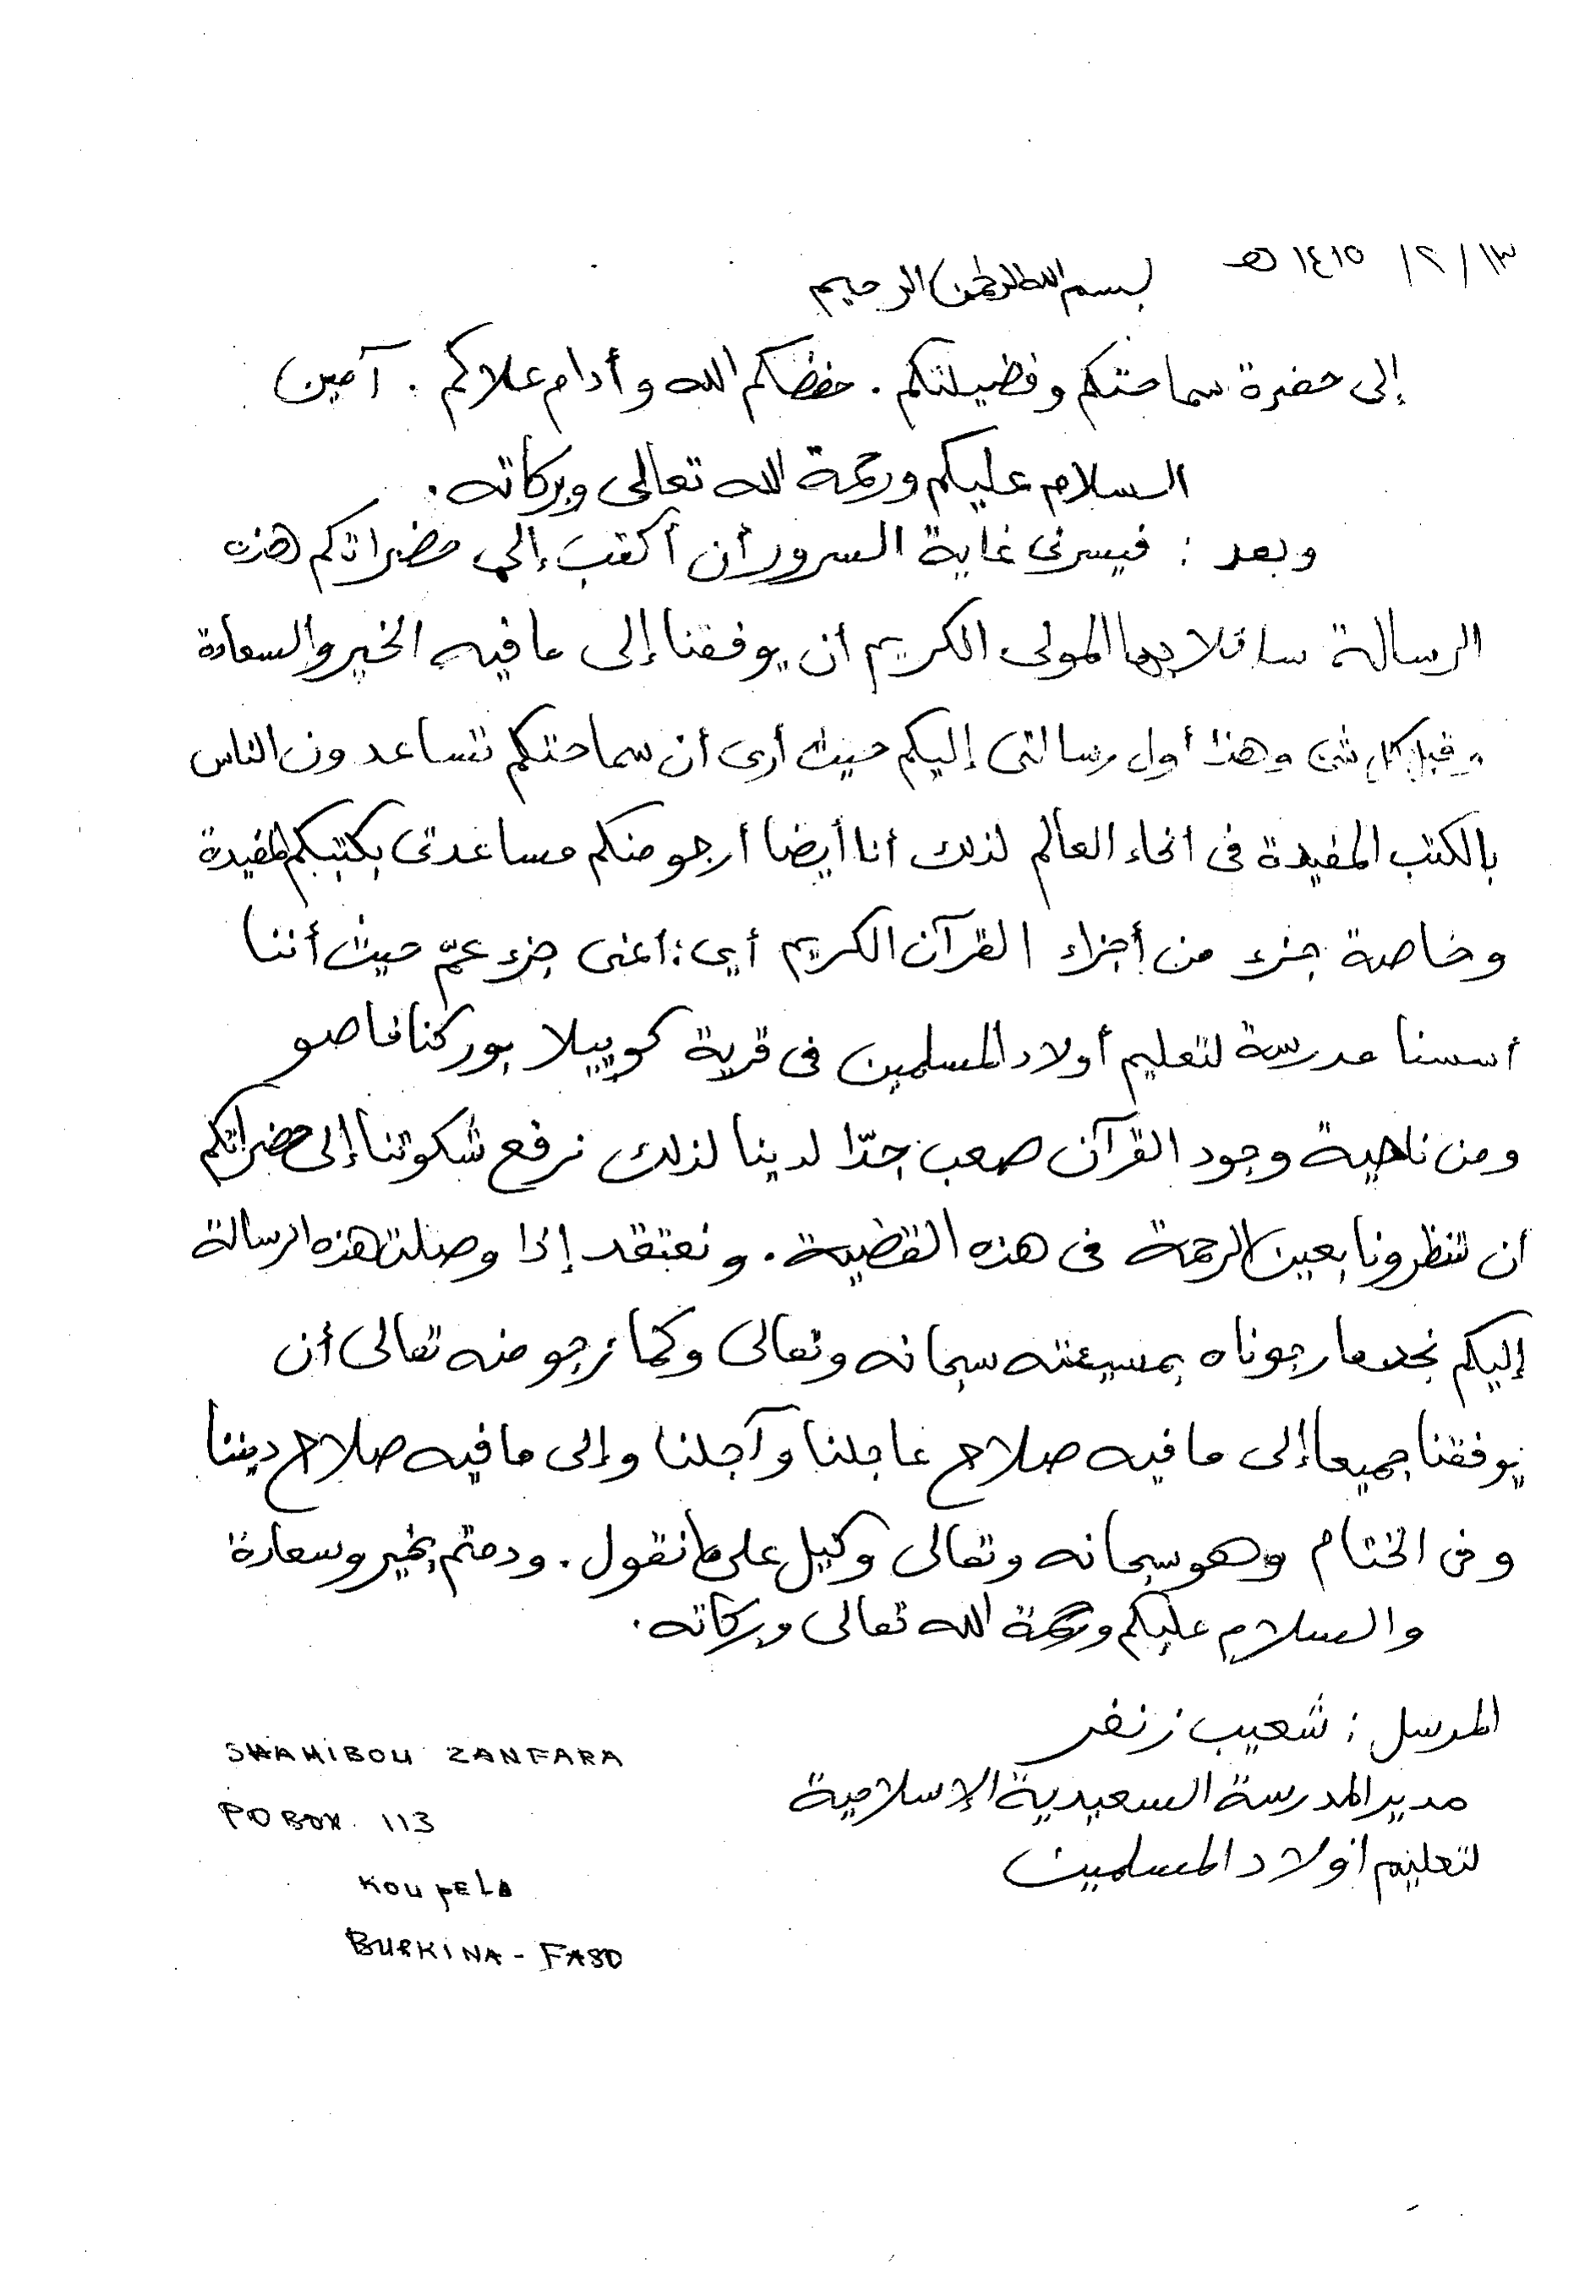 ١٣/٢/١٤١٥ هـ
بسم الله الرحمن الرحيم
إلى حضرة سماحتكم وفضيلتكم. حفظكم الله وأدام علاكم. آمين
السلام عليكم ورحمة الله تعالى وبركاته.
وبعد: فيسرني غاية السرور أن أكتب إلي حضراتكم هذه
الرسالة سائلا بها المولى الكريم ان يوفقنا إلى ما فيه الخير والسعادة
وقبل كل شئ وهذا أول رسالتى إليكم حيث أرى أن سماحتكم تساعدون الناس
بالكتب المفيدة فى أنحاء العالم لذلك أنا أيضا أرجو منكم مساعدتى بكتبكم المفيدة
وخاصة جزء من أجزاء القرآن الكريم أي: أعنى جزء عمّ حيث أننا
أسسنا مدرسة لتعليم أولاد المسلمين فى قرية كوبيلا بوركنافاصو
ومن ناحية وجود القرآن صعب جدّا لدينا لذلك نرفع شكوتنا إلى حضراتكم
ان تنظرونا بعين الرحمة فى هذه القضية. ونعتقد إذا وصلت هذه الرسالة
إليكم نجد ما رجوناه بمسيئته سبحانه وتعالى وكما نرجو منه تعالى أن
يوفقنا جميعا إلى ما فيه صلاح عاجلنا وآجلنا وإلى ما فيه صلاح ديننا
وفى الختام وهو سبحانه وتعالى وكيل على ما نقول. ودمتم بخير وسعادة
والسلام عليكم ورحمة الله تعالى وبركاته.
المرسل: شعيب زنفر
مدير المدرسة السعيدية الإسلامية
لتعليم اولاد المسلمين
SHAHIBOU ZANFARA
PO BOX 113
KOUPELA
BURKINA - FASO